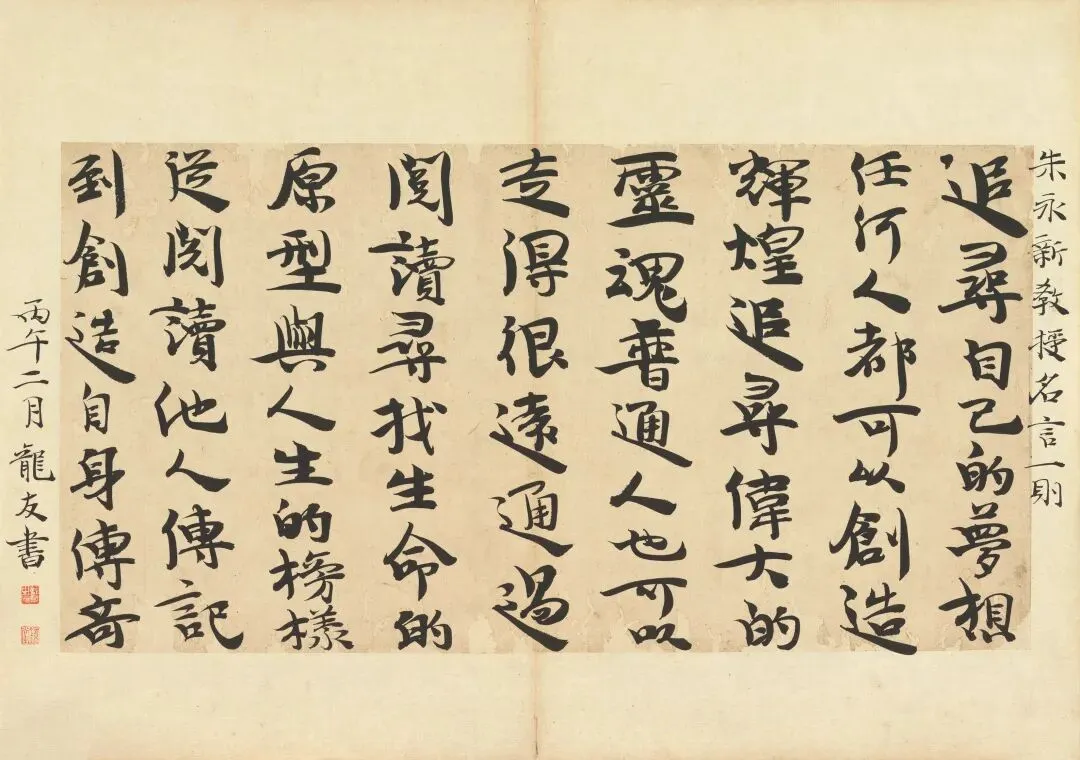 朱永新教授名言一則
追尋自己的夢想
任何人都可以創造
輝煌追尋偉大的
靈魂普通人也可以
走得很遠通過
閱讀尋找生命的
原型與人生的榜樣
從閱讀他人傳記
到創造自身傳奇
丙午二月龍友書